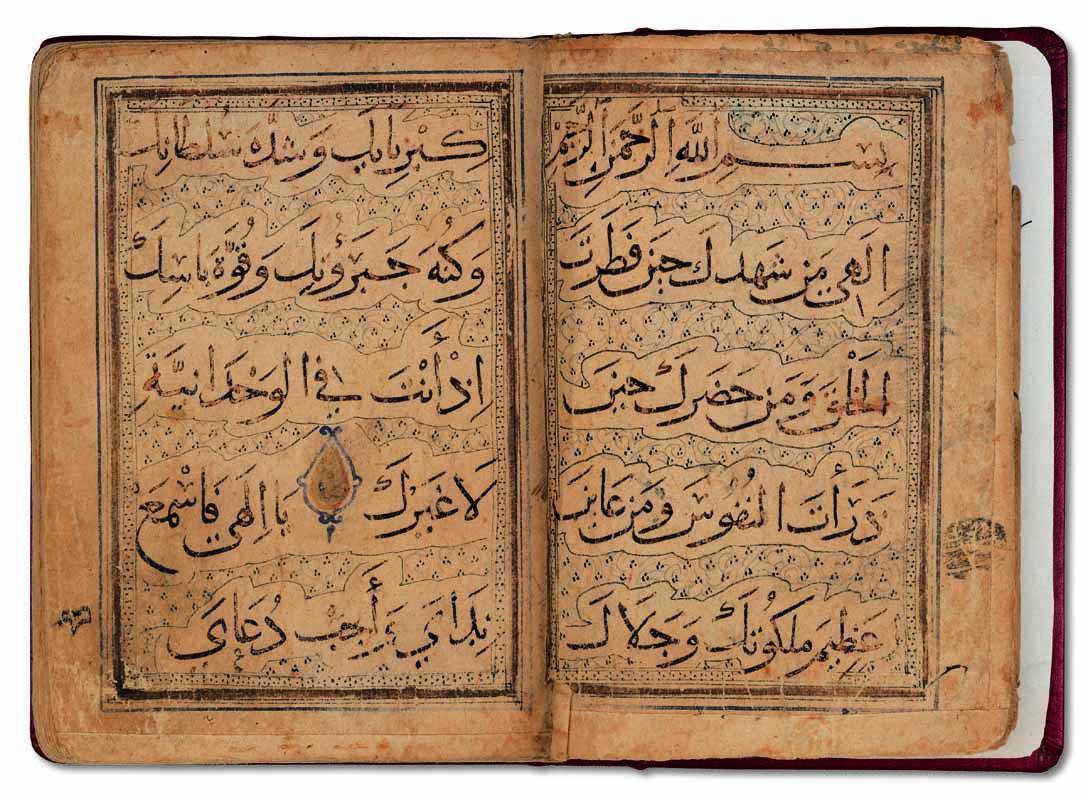 بسم الله الرحمن الرحيم
الهي من شهدك حين فطرت
الخلق ومن حضرك حين
ذرأت النفوس ومن عاين
عظيم ملكوتك وجلال
كبريايك وشدة سلطانك
وكنه جبروتك وقوة باسك
إذ أنت في الوحدانية
لا غيرك يا الهي فاسمع
ندأي و أجب دعاي